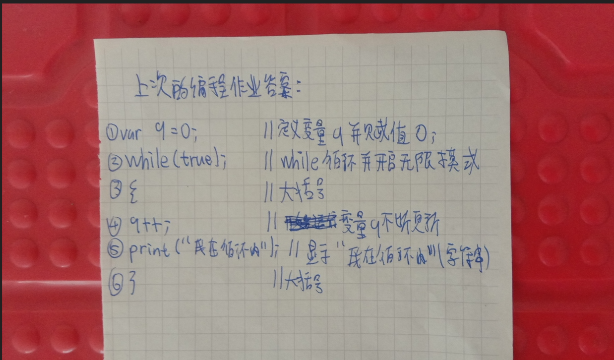 上次的编程作业答案:
①var q=0; //定义变量q并赋值0;
②while(true); //while循环并开启无限模式
③{ //大括号
④q++; //变量q不断更新
⑤print("我在循环内"); //显示"我在循环内"(字符串)
⑥} //大括号